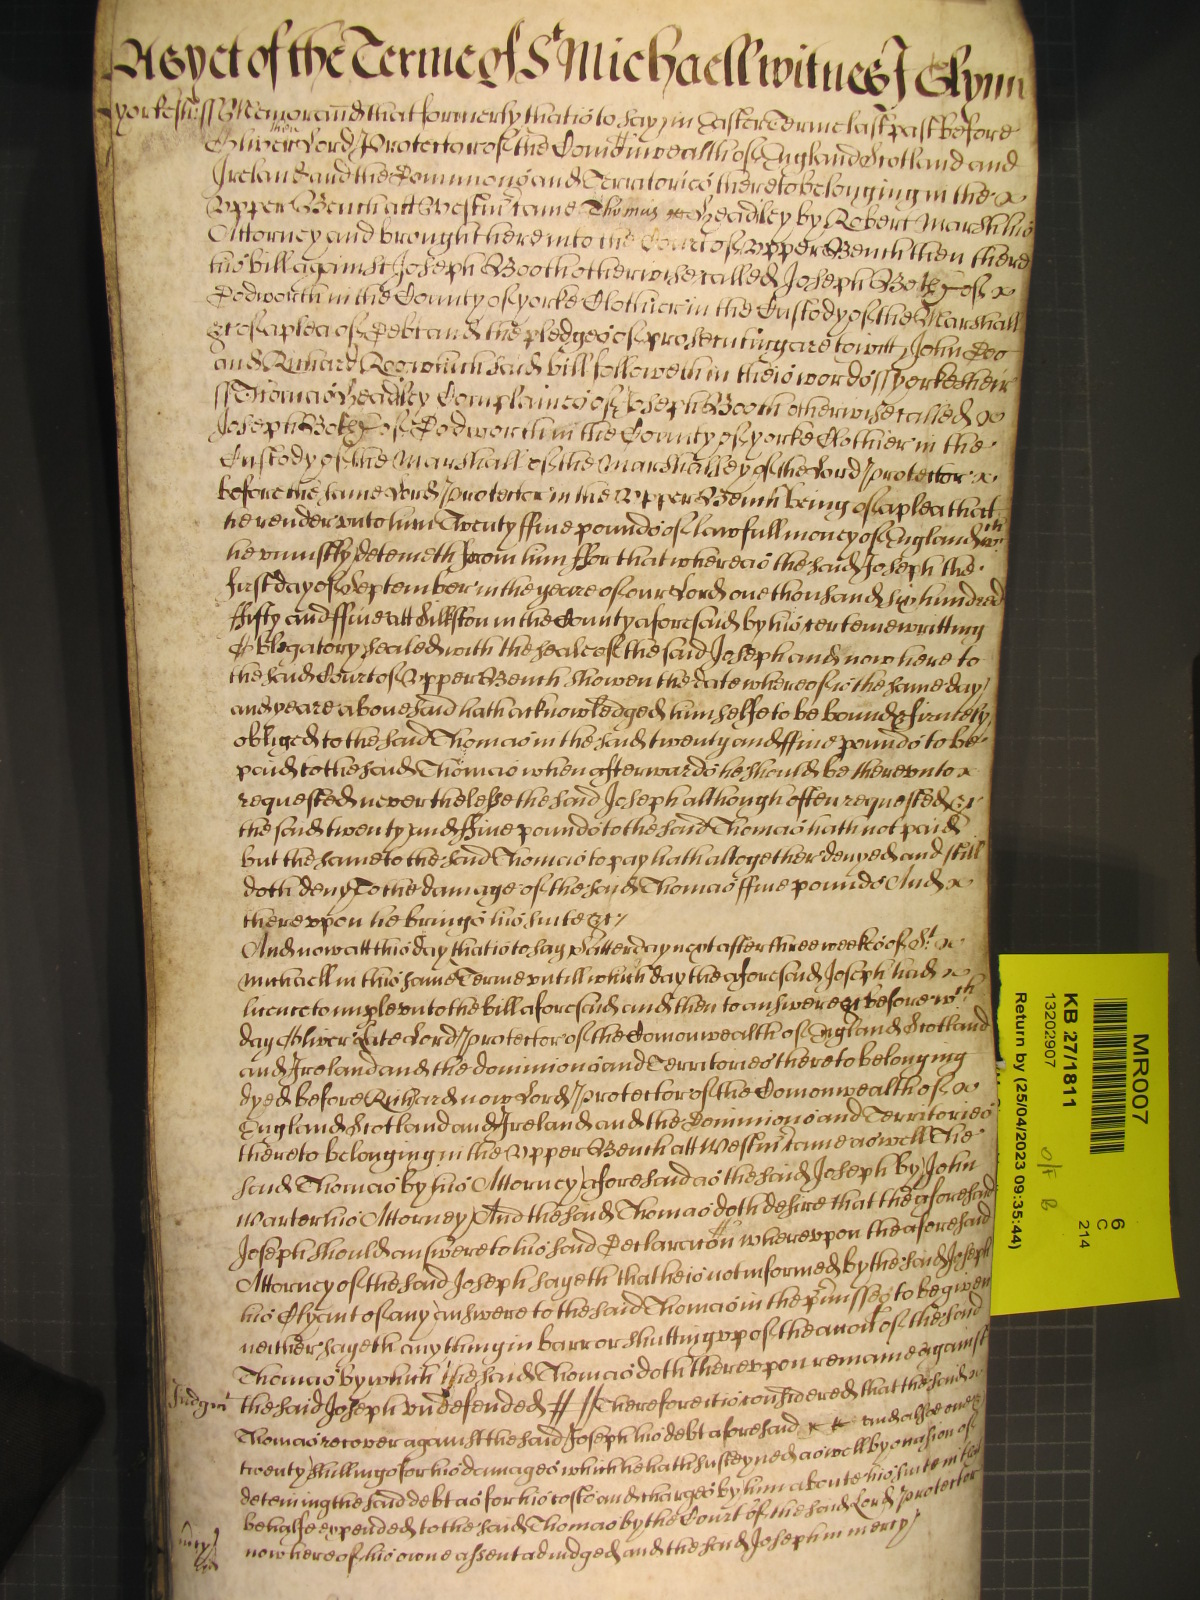 As yet of the Terme of St Michaell witnes J Glynn
yorkesh ss Memorand that formerly that is to say in Easter Terme last past before
Oliver then Lord Protector of the Comonwealth of England Scotland and
Ireland and the Dominions and Territories thereto belonging in the
Upper Bench att Westmr came Thomas Headley by Robert Marsh his
Attorney and brought here into the Court of Upper Bench then there
his bill against Joseph Booth otherwise called Joseph Bothy of
Dodworth in the County of yorke Clothier in the Custody of the Marshall
&c of a plea of Debt and the pledges of prosecuting are to witt John Doo
and Richard Roo which said bill followeth in theis words ss yorkesheir
ss Thomas Headley Complaines of Joseph Booth otherwise called
Joseph Bothy of Dodworth in the County of yorke Clothier in the
Custody of the Marshall of the Marshallsey of the Lord Protector
before the same Lord Protector in the Upper Bench being of a plea that
he render unto him Twenty ffive pounds of lawfull money of England wch
he uniustly deteineth from him ffor that whereas the said Joseph the
first day of September in the yeare of our Lord one thousand six hundred
ffifty and ffive att Silkston in the County aforesaid by his certeine writting
Obligatory sealed with the seale of the said Joseph and now here to
the said Court of Upper Bench showen the date whereof is the same day
and yeare abovesaid hath acknowledged himselfe to be bound & firmely
obliged to the said Thomas in the said twenty and ffive pounds to be
paid to the said Thomas when afterwards he should be thereunto
requested neverthelesse the said Joseph although often requested &c
the said twenty and ffive pounds to the said Thomas hath not paid
but the same to the said Thomas to pay hath altogether denyed and still
doth deny To the damage of the said Thomas ffive pounds And
thereupon he brings his suite &c
And now att this day that is to say Satterday next after three weekes of St
Michaell in this same Terme untill which day the aforesaid Joseph had
licence to imple unto the bill aforesaid and then to answere &c before wch
day Oliver late Lord Protector of the Comonwealth of England Scotland
and Ireland and the dominions and Territories thereto belonging
dyed before Richard now Lord Protector of the Comonwealth of
England Scotland and Ireland and the Dominions and Territories
thereto belonging in the Upper Bench att Westmr came aswell the
said Thomas by his Attorney aforesaid as the said Joseph by John
Warter his Attorney And the said Thomas doth desire that the aforesaid
Joseph should answere to his said Declaracon whereupon the aforesaid
Attorney of the said Joseph sayeth that he is not informed by the said Joseph
his Clyant of any answere to the said Thomas in the pmisses to be given
neither sayeth any thing in barr or shutting up of the accon of the said
Thomas by which the said Thomas doth thereupon remaine against
Judgmt the said Joseph undefended Therefore it is considered that the said
Thomas recover against the said Joseph his debt aforesaid and alsoe
twenty shillings for his damages which he hath susteyned aswell by occasion of
deteining the said debt as for his costs and charges by him about his suite in that
behalfe expended to the said Thomas by the Court of the said Lord Protector
mercy now here of his owne assent adiudged and the said Joseph in mercy
MR007
KB 27/1811
13202907
Return by (25/04/2023 09:35:44)
6
C
214
o/f B